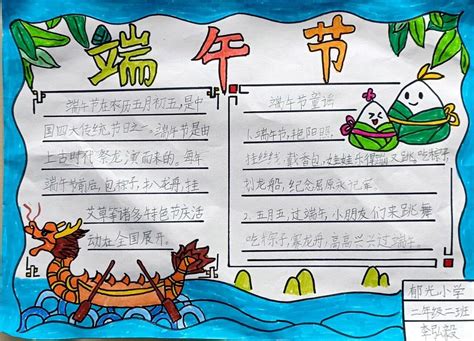 端午节
端午节在农历五月初五,是中
国四大传统节日之一。端午节是由
上古时代祭龙演而来的。每年
端午节前后,包粽子,扒龙舟,挂
艾草等诸多特色节庆活
动在全国展开。
端午节童谣
1.端午节,艳阳照,
挂丝线,戴香包,娃娃乐得蹦又跳。吃粽子
划龙船,纪念屈原永记牢。
2.五月五,过端午,小朋友们来跳舞
吃粽子,赛龙舟,高高兴兴过端午。
郁光小学
二年级二班
李弘毅